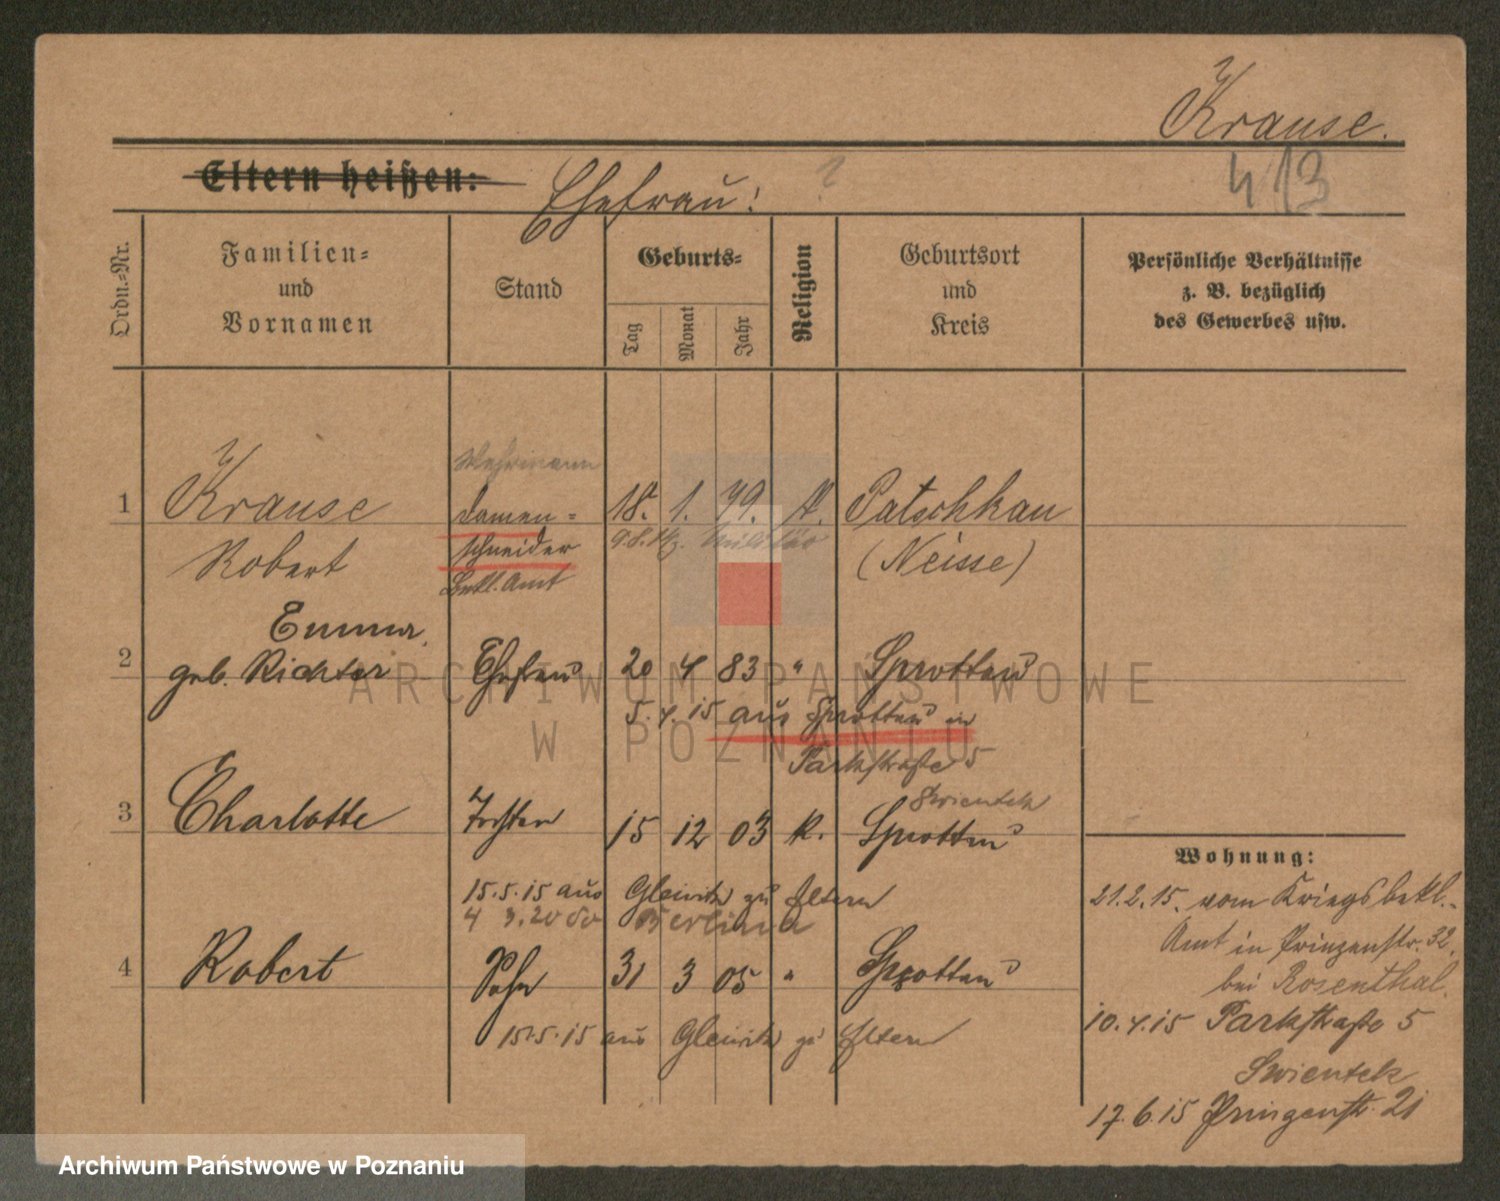 Krause.
413
Eltern heißen: Ehefrau: ?
Ordn.-Nr.
Familien-
und
Vornamen
Stand
Geburts-
Tag
Monat
Jahr
Religion
Geburtsort
und
Kreis
Persönliche Verhältnisse
z. B. bezüglich
des Gewerbes usw.
Wehrmann
1 Krause Damen- 18. 1. 79. K. Patschkau
Robert schneider Militär (Neisse)
Bekl. Amt
Emma,
2 geb. Richter Ehefrau 20 4 83 " Sprottau
5.4.15 aus Sprottau in
Parkstraße 5
Swientek
3 Charlotte Tochter 15 12 03 K. Sprottau
15.5.15 aus Gleiwitz zu Eltern
4 3.20 Berlin
4 Robert Sohn 31 3 05 " Sprottau
15.5.15 aus Gleiwitz zu Eltern
Wohnung:
21.2.15. vom Kriegsbekl.-
Amt in Prinzenstr. 32.
bei Rosenthal.
10.4.15 Parkstraße 5
Swientek
17.6.15 Prinzenstr. 21
ARCHIWUM PAŃSTWOWE
W POZNANIU
Archiwum Państwowe w Poznaniu